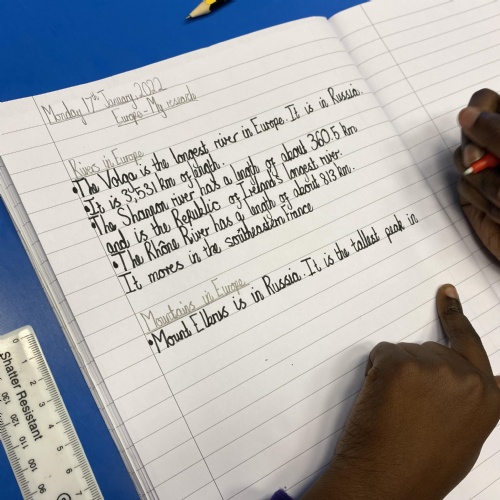 Monday 17th January 2022
Europe - My research
Rivers in Europe
• The Volga is the longest river in Europe. It is in Russia.
It is 3,531 km of length.
• The Shannon river has a length of about 360.5 km
and is the Republic of Ireland's longest river.
• The Rhône River has a length of about 813 km.
It moves in the southeastern France
Mountains in Europe
• Mount Elbrus is in Russia. It is the tallest peak in
Shatter Resistant
0 1 2 3 4 5 6 7
130 120 110 100 90